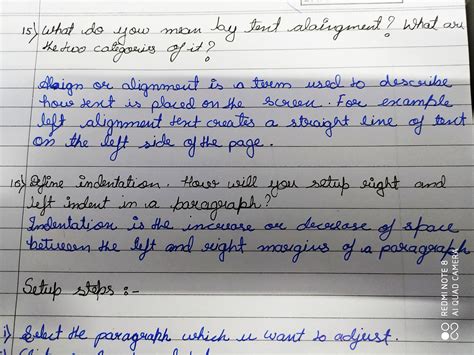 15) What do you mean by text alaingment? What are
the two categories of it?
Align or alignment is a term used to describe
how text is placed on the screen. For example
left alignment text creates a straight line of text
on the left side of the page.
16) Define indentation. How will you setup right and
left indent in a paragraph?
Indentation is the increase or decrease of space
between the left and right margins of a paragraph
Setup steps :-
i) Select the paragraph which u want to adjust.
REDMI NOTE 8
AI QUAD CAMERA